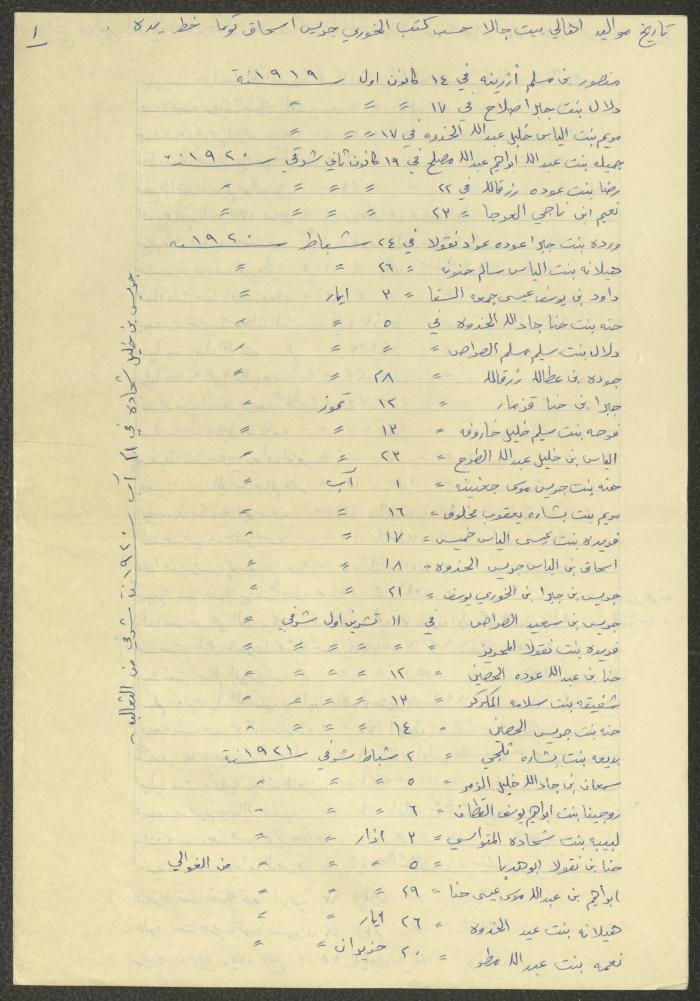 ١
تاريخ مواليد اهالي بيت جالا حسب كتب الخوري جريس اسحاق كوما خط يده
منصور بن مسلم أزرينه في ١٤ كانون اول سنة ١٩١٩
دلال بنت جبرا صلاح في ١٧ = = =
مريم بنت الياس خليل عبدالله الخذوه في ١٧ = = =
جميله بنت عبدالله ابراهيم عبدالله مصلح في ١٩ كانون ثاني شرقي سنة ١٩٢٠
رضا بنت عوده رزقالله في ٢٢ = = = =
نعيم ابن ناجي العوجا = ٢٣ = = = =
ورده بنت جبرا عوده عواد نقولا في ٢٤ شباط سنة ١٩٢٠
هيلانه بنت الياس سالم حنونه = ٢٦ = =
داود بن يوسف عيسى جمعه السقا = ٣ ايار =
حنه بنت حنا جادالله الخذوه في ٥ = =
دلال بنت سليم مسلم الصراص = = = =
جوده بن عطالله رزقالله = ٢٨ = =
جبرا بن حنا قزمار = ١٢ تموز =
فرحه بنت سليم خليل خاروفه = ١٣ = =
الياس بن خليل عبدالله الطرح = ٢٣ = =
حنه بنت جريس موسى جعنينه = ١ آب =
مريم بنت بشاره يعقوب مخلوف = ١٦ = =
فريده بنت عيسى الياس خميس = ١٧ = =
اسحاق بن الياس جريس الخذوه = ١٨ = =
جريس بن جبرا بن الخوري يوسف = ٢١ = =
جريس بن سعيد الصراص في ١١ تشرين اول شرقي =
فريده بنت نقولا = = = = = =
حنا بن عبدالله عوده الحصين = ١٢ = = = =
شفيقه بنت سلامه المكركر = ١٣ = = = =
حنه بنت جريس الحصين = ١٤ = = = =
بديعه بنت بشاره ثلجي = ٢ شباط شرقي سنة ١٩٢١
سمعان بن جادالله خليل = ٥ = = =
روجينا بنت ابراهيم يوسف القطان = ٦ = = =
لبيبه بنت شحاده = ٣ اذار = =
حنا بن نقولا ابوهدبا = ٥ = = = من الغوالي
ابراهيم بن عبدالله موسى عيسى حنا = ٢٩ = = =
هيلانه بنت عيد الخذوه = ٢٦ ايار = =
نعمه بنت عبدالله مطر = ٢٠ حزيران = =
جريس بن خليل شحاده في ٢١ آب سنة ١٩٢٠ شرقي من